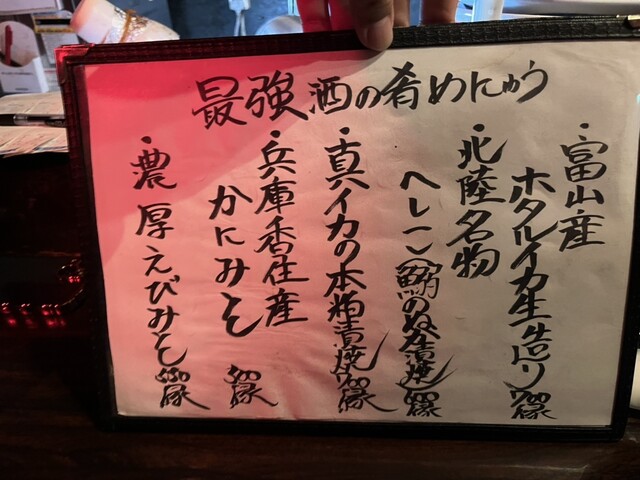 最強酒の肴めにゅう
・富山産
ホタルイカ生造り 縁
・北陸名物
へしこ(鰯のぬか漬焼) 縁
・真イカの本粕漬焼 縁
・兵庫香住産
かにみそ 縁
・濃厚えびみそ 縁